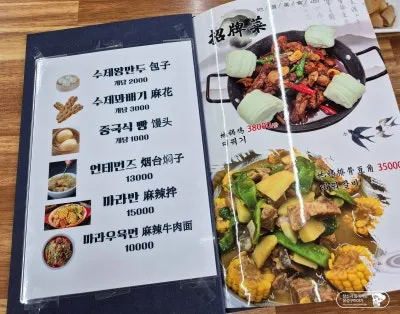 수제왕만두 包子
개당 2000
수제꽈배기 麻花
개당 3000
중국식 빵 馒头
개당 1000
언태먼즈 烟台焖子
13000
마라반 麻辣拌
15000
마라우육면 麻辣牛肉面
10000
招牌菜
38000
35000